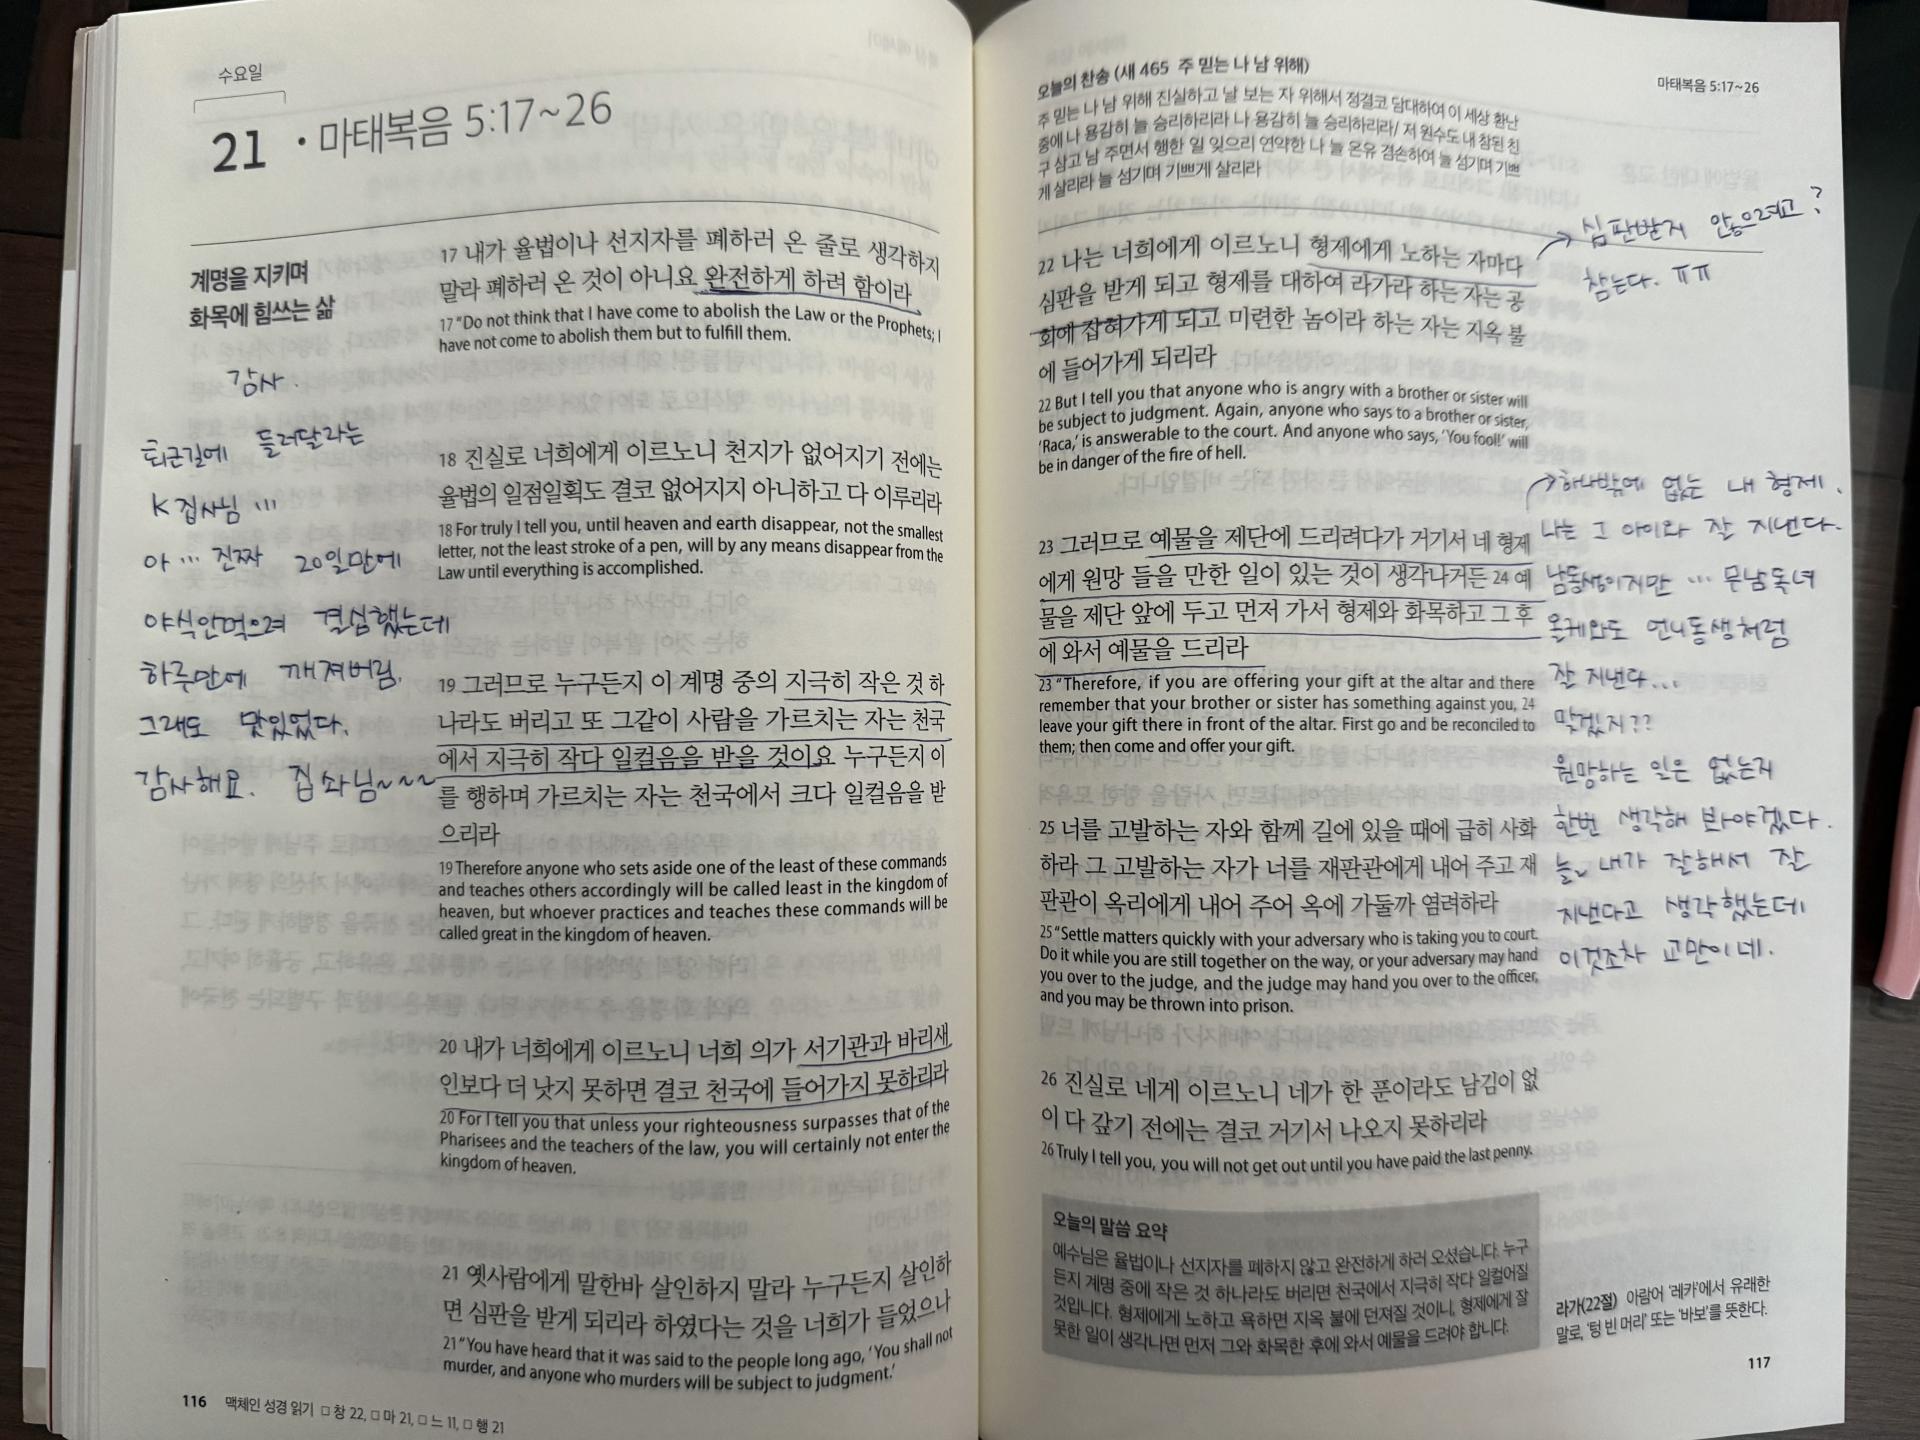 수요일
21 · 마태복음 5:17~26
계명을 지키며
화목에 힘쓰는 삶
감사.
퇴근길에 들러달라는
K 집사님 …
아 … 진짜 20일만에
야식안먹으려 결심했는데
하루만에 깨져버림.
그래도 맛있었다.
감사해요. 집사님~~~
17 내가 율법이나 선지자를 폐하러 온 줄로 생각하지
말라 폐하러 온 것이 아니요 완전하게 하려 함이라
17 “Do not think that I have come to abolish the Law or the Prophets; I
have not come to abolish them but to fulfill them.
18 진실로 너희에게 이르노니 천지가 없어지기 전에는
율법의 일점일획도 결코 없어지지 아니하고 다 이루리라
18 For truly I tell you, until heaven and earth disappear, not the smallest
letter, not the least stroke of a pen, will by any means disappear from the
Law until everything is accomplished.
19 그러므로 누구든지 이 계명 중의 지극히 작은 것 하
나라도 버리고 또 그같이 사람을 가르치는 자는 천국
에서 지극히 작다 일컬음을 받을 것이요 누구든지 이
를 행하며 가르치는 자는 천국에서 크다 일컬음을 받
으리라
19 Therefore anyone who sets aside one of the least of these commands
and teaches others accordingly will be called least in the kingdom of
heaven, but whoever practices and teaches these commands will be
called great in the kingdom of heaven.
20 내가 너희에게 이르노니 너희 의가 서기관과 바리새
인보다 더 낫지 못하면 결코 천국에 들어가지 못하리라
20 For I tell you that unless your righteousness surpasses that of the
Pharisees and the teachers of the law, you will certainly not enter the
kingdom of heaven.
21 옛사람에게 말한바 살인하지 말라 누구든지 살인하
면 심판을 받게 되리라 하였다는 것을 너희가 들었으나
21 “You have heard that it was said to the people long ago, ‘You shall not
murder, and anyone who murders will be subject to judgment.’
116 맥체인 성경 읽기 □ 창 22, □ 마 21, □ 느 11, □ 행 21
오늘의 찬송 (새 465 주 믿는 나 남 위해)
주 믿는 나 남 위해 진실하고 날 보는 자 위해서 정결코 담대하여 이 세상 환난
중에 나 용감히 늘 승리하리라 나 용감히 늘 승리하리라/ 저 원수도 내 참된 친
구 삼고 남 주면서 행한 일 잊으리 연약한 나 늘 온유 겸손하여 늘 섬기며 기쁘
게 살리라 늘 섬기며 기쁘게 살리라
마태복음 5:17~26
22 나는 너희에게 이르노니 형제에게 노하는 자마다
심판을 받게 되고 형제를 대하여 라가라 하는 자는 공
회에 잡혀가게 되고 미련한 놈이라 하는 자는 지옥 불
에 들어가게 되리라
22 But I tell you that anyone who is angry with a brother or sister will
be subject to judgment. Again, anyone who says to a brother or sister,
‘Raca,’ is answerable to the court. And anyone who says, ‘You fool!’ will
be in danger of the fire of hell.
→ 심판받지 않으려고?
참는다. ㅠㅠ
23 그러므로 예물을 제단에 드리려다가 거기서 네 형제
에게 원망 들을 만한 일이 있는 것이 생각나거든 24 예
물을 제단 앞에 두고 먼저 가서 형제와 화목하고 그 후
에 와서 예물을 드리라
23 “Therefore, if you are offering your gift at the altar and there
remember that your brother or sister has something against you, 24
leave your gift there in front of the altar. First go and be reconciled to
them; then come and offer your gift.
→ 하나밖에 없는 내 형제.
나는 그 아이와 잘 지낸다.
남동생이지만 … 무남독녀
올케와도 언니동생처럼
잘 지낸다...
맞겠지??
원망하는 일은 없는지
한번 생각해 봐야겠다.
늘 내가 잘해서 잘
지낸다고 생각했는데
이것조차 교만이네.
25 너를 고발하는 자와 함께 길에 있을 때에 급히 사화
하라 그 고발하는 자가 너를 재판관에게 내어 주고 재
판관이 옥리에게 내어 주어 옥에 가둘까 염려하라
25 “Settle matters quickly with your adversary who is taking you to court.
Do it while you are still together on the way, or your adversary may hand
you over to the judge, and the judge may hand you over to the officer,
and you may be thrown into prison.
26 진실로 네게 이르노니 네가 한 푼이라도 남김이 없
이 다 갚기 전에는 결코 거기서 나오지 못하리라
26 Truly I tell you, you will not get out until you have paid the last penny.
오늘의 말씀 요약
예수님은 율법이나 선지자를 폐하지 않고 완전하게 하러 오셨습니다. 누구
든지 계명 중에 작은 것 하나라도 버리면 천국에서 지극히 작다 일컬어질
것입니다. 형제에게 노하고 욕하면 지옥 불에 던져질 것이니, 형제에게 잘
못한 일이 생각나면 먼저 그와 화목한 후에 와서 예물을 드려야 합니다.
라가(22절) 아람어 ‘레카’에서 유래한
말로, ‘텅 빈 머리’ 또는 ‘바보’를 뜻한다.
117